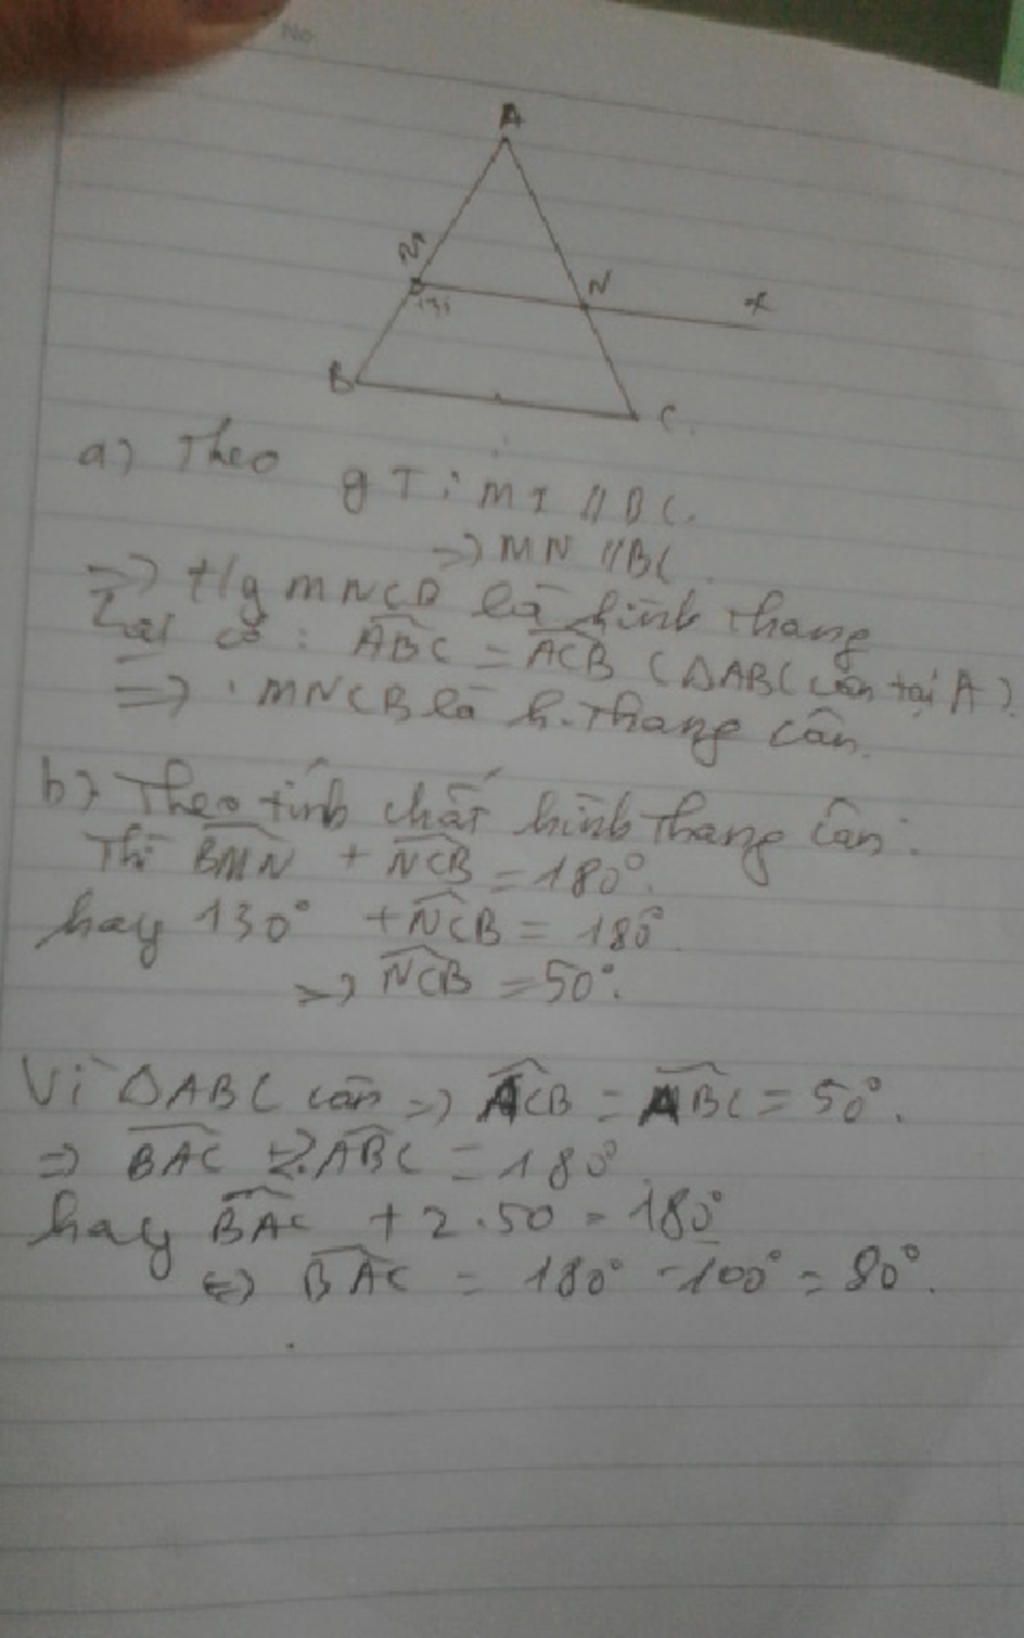 No
A
M
N
x
130
B
C.
a) Theo
gT: Mx // BC.
=> MN // BC.
=> t/g MNCB là hình thang
Lại có: ABC = ACB (ΔABC cân tại A).
=> MNCB là h.thang cân.
b) Theo tính chất hình thang cân:
Thì BMN + NCB = 180°.
hay 130° + NCB = 180°.
=> NCB = 50°.
Vì ΔABC cân => ACB = ABC = 50°.
=> BAC + 2.ABC = 180°
hay BAC + 2.50 = 180°
<=> BAC = 180° - 100° = 80°.